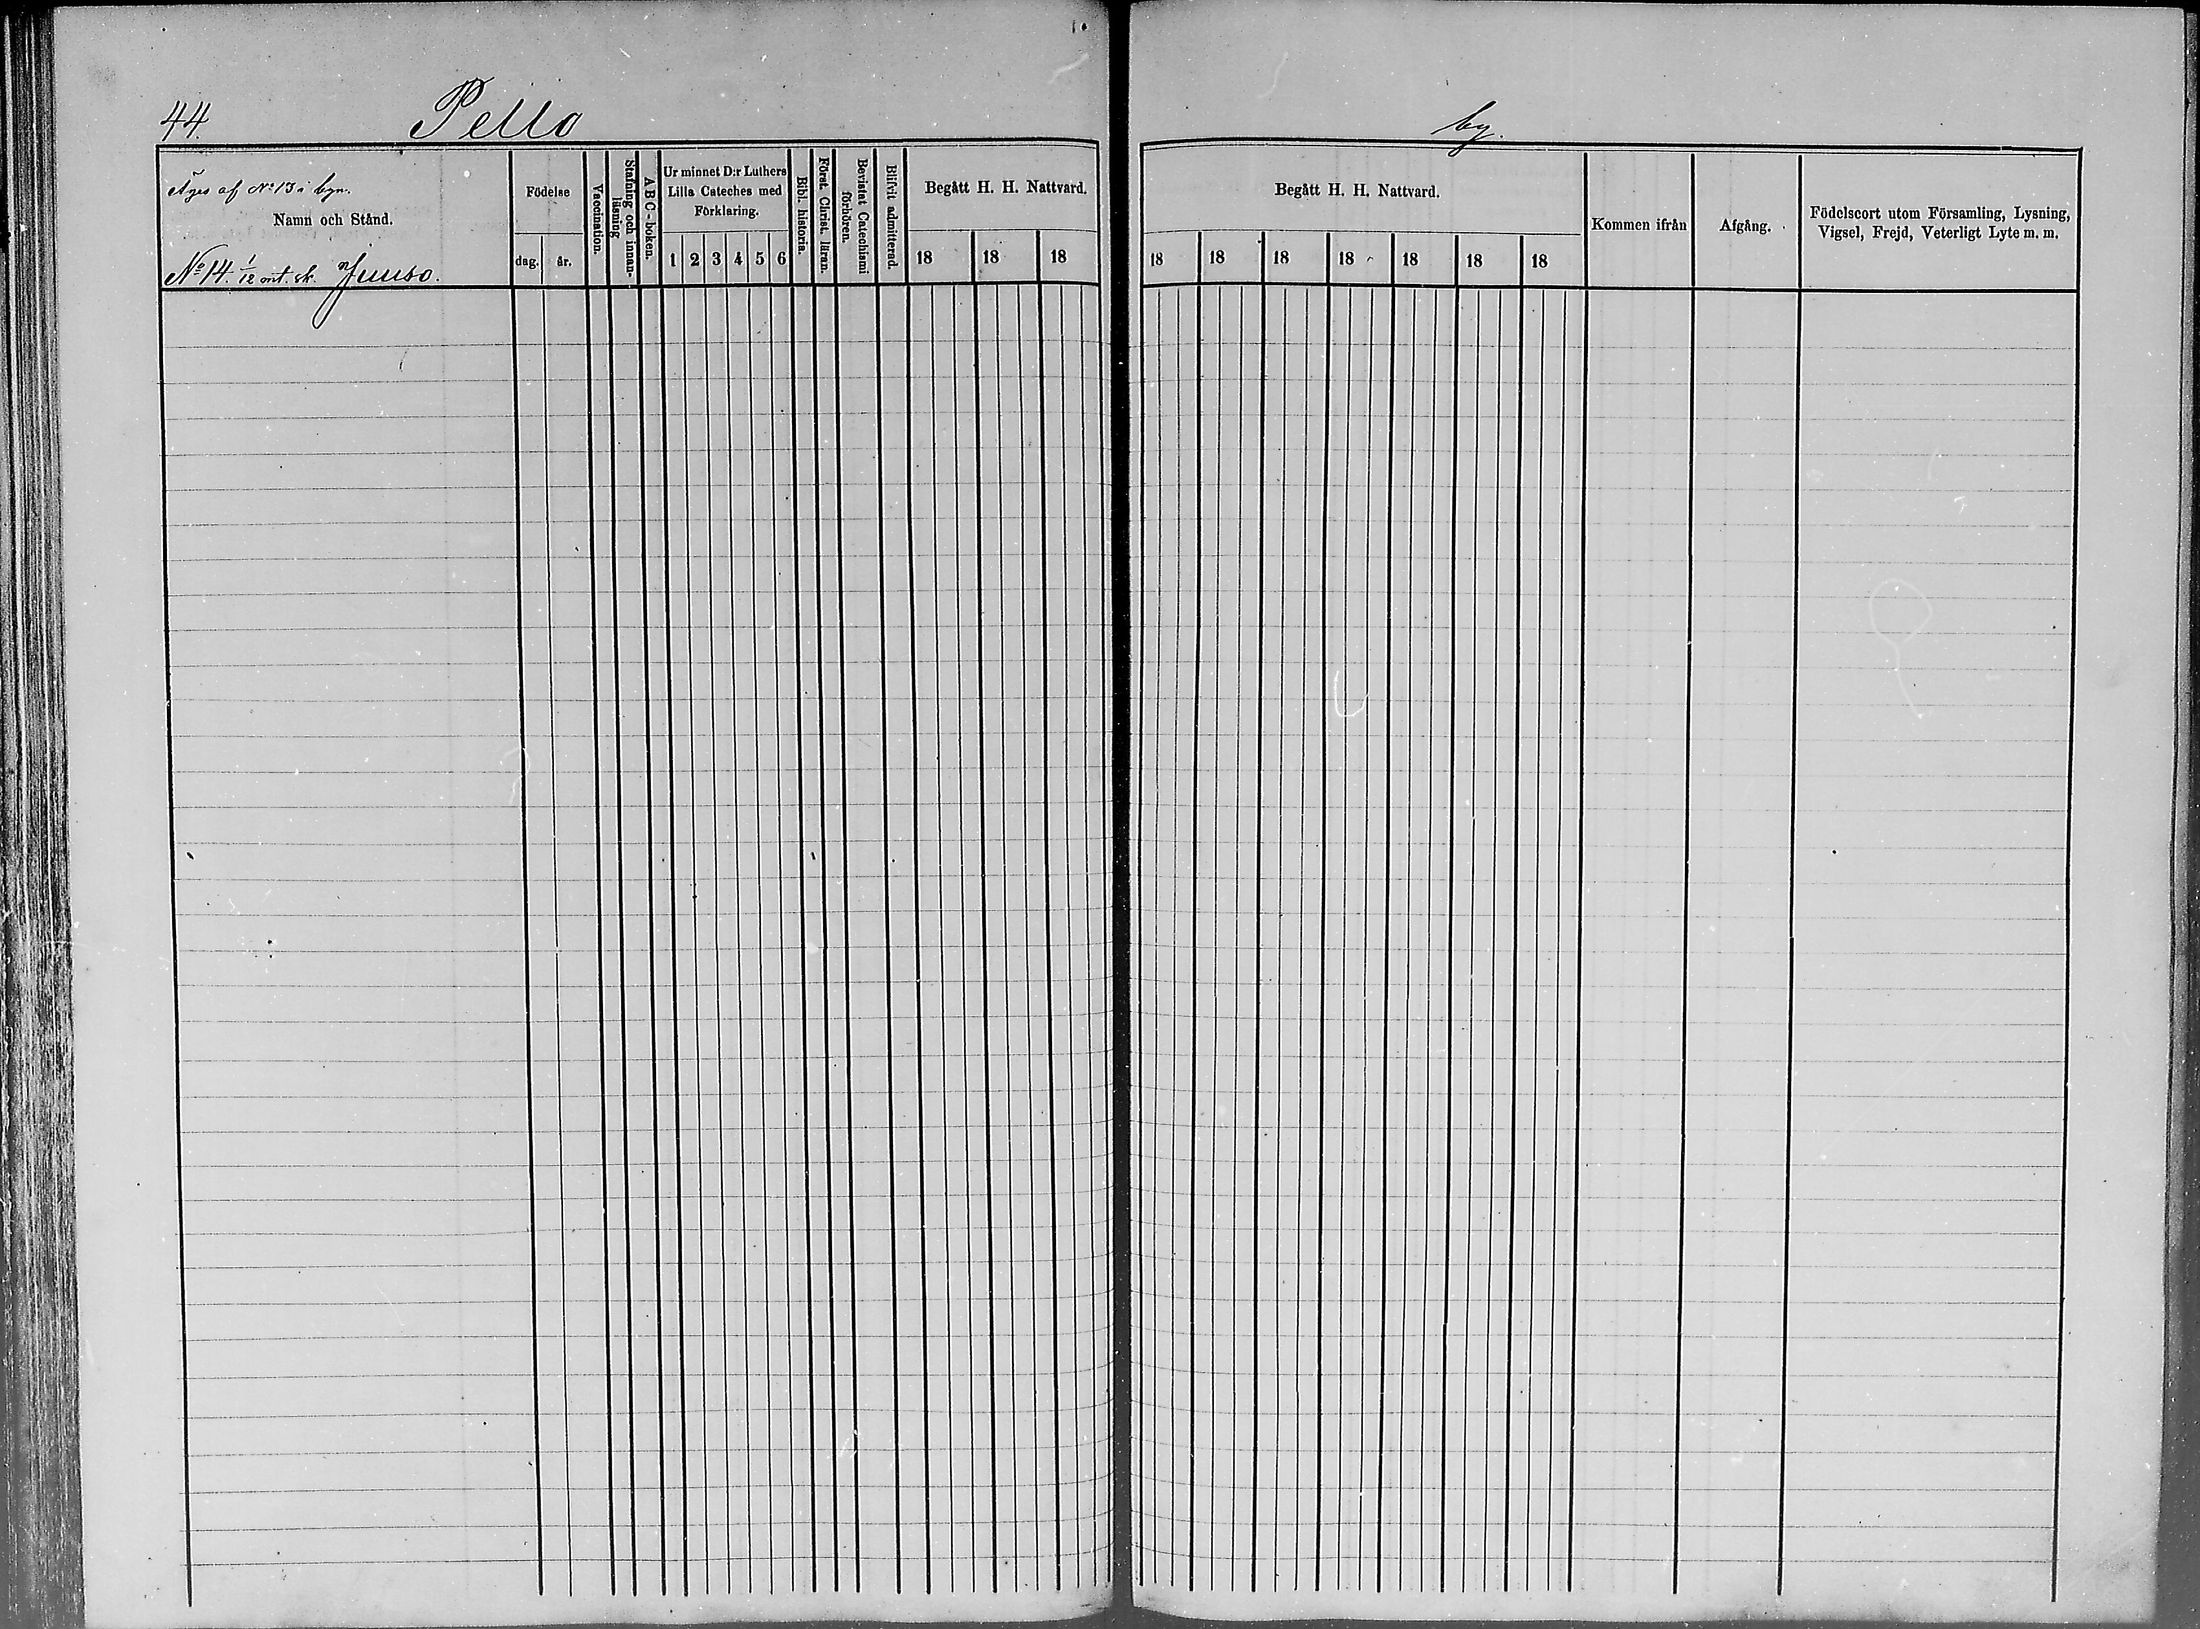 44.
Pello
by.
Äges af No 13 i byn.
Namn och Stånd.
No 14. 1/12 mt. sk. Juuso.
Födelse
dag.
år.
Vaccination.
Stafning och innan-
läsning
ABC-boken.
Ur minnet D:r Luthers
Lilla Cateches med
Förklaring.
1 2 3 4 5 6
Bibl. historia.
Först. Christ. läran.
Bevistat Catechismi
förhören.
Blifvit admitterad.
Begått H. H. Nattvard.
18 18 18
Begått H. H. Nattvard.
18 18 18 18 18 18 18
Kommen ifrån
Afgång.
Födelseort utom Församling, Lysning,
Vigsel, Frejd, Veterligt Lyte m. m.